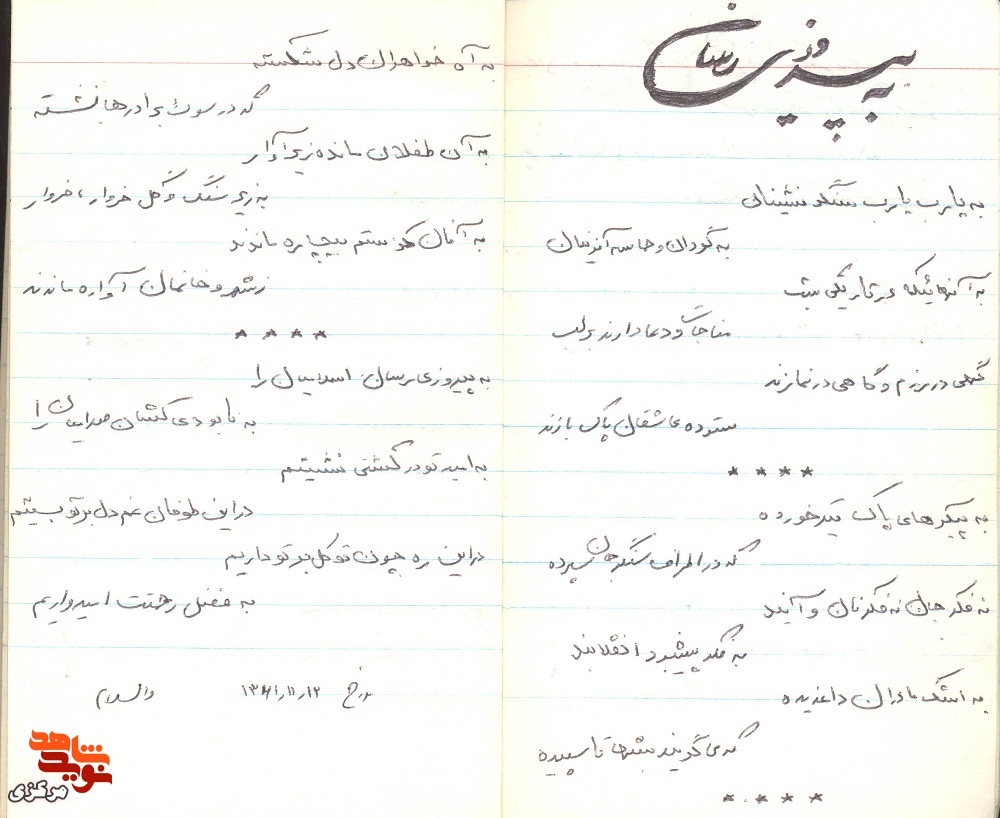 به پیروزی رسان
به یارب یارب سنگر نشینان
به گودان و حماسه آفرینان
به آنهائیکه در تاریکی شب
مناجات و دعا دارند بر لب
گهی در رزم و گاهی در نمازند
ستوده عاشقان پاک بازند
* * * *
به پیکرهای پاک تیر خورده
که در اطراف سنگر جان سپرده
نه فکر جان نه فکر نان و آبند
به فکر پیشبرد انقلابند
به اشک مادران داغدیده
که می گویند شبها تا سپیده
* * * *
به آه خواهران دل شکسته
که در سوگ برادرها نشسته
به آن طفلان مانده زیر آوار
به زیر سنگ و گل خروار ، خروار
به آنان کز ستم بیچاره ماندند
ز شهر و خانمان آواره ماندند
* * * *
به پیروزی رسان اسلامیان را
به نابودی کشان صدامیان را
به امید تو در کشتی نشستیم
در این طوفان غم دل بر تو بستیم
در این ره چون توکل بر تو داریم
به فضل رحمتت امیدواریم
مورخ ۱۳۶۱/۱۱/۱۲ والسلام
نوید شاهد
مرکزی